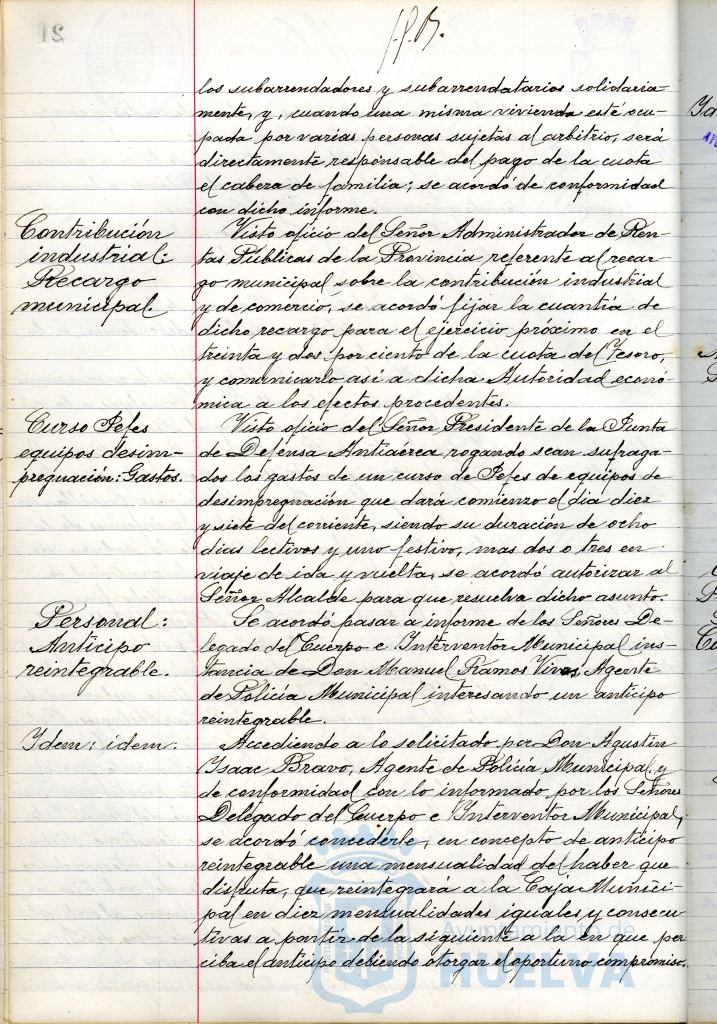 los subarrendadores y subarrendatarios solidaria-
mente, y, cuando una misma vivienda esté ocu-
pada por varias personas sujetas al arbitrio, será
directamente responsable del pago de la cuota
el cabeza de familia; se acordó de conformidad
con dicho informe.
Contribución
industrial:
Recargo
municipal.
Visto oficio del Señor Administrador de Ren-
tas Públicas de la Provincia referente al recar-
go municipal sobre la contribución industrial
y de comercio, se acordó fijar la cuantía de
dicho recargo para el ejercicio próximo en el
treinta y dos por ciento de la cuota del Tesoro,
y comunicarlo así a dicha Autoridad econó-
mica a los efectos procedentes.
Curso Jefes
equipos desim-
pregnación: Gastos.
Visto oficio del Señor Presidente de la Junta
de Defensa Antiaérea rogando sean sufraga-
dos los gastos de un curso de Jefes de equipos de
desimpregnación que dará comienzo el día diez
y siete del corriente, siendo su duración de ocho
días lectivos y uno festivo, mas dos o tres en
viaje de ida y vuelta, se acordó autorizar al
Señor Alcalde para que resuelva dicho asunto.
Personal:
Anticipo
reintegrable.
Se acordó pasar a informe de los Señores De-
legado del Cuerpo e Interventor Municipal ins-
tancia de Don Manuel Ramos Vivas, Agente
de Policía Municipal interesando un anticipo
reintegrable.
Idem: idem:
Accediendo a lo solicitado por Don Agustín
Isaac Bravo, Agente de Policía Municipal, y
de conformidad con lo informado por los Señores
Delegado del Cuerpo e Interventor Municipal,
se acordó concederle, en concepto de anticipo
reintegrable una mensualidad del haber que
disfruta, que reintegrará a la Caja Munici-
pal en diez mensualidades iguales y consecu-
tivas a partir de la siguiente a la en que per
ciba el anticipo debiendo otorgar el oportuno compromiso.
Ayuntamiento de
HUELVA
21